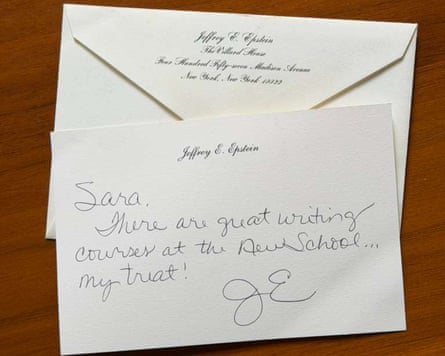 Jeffrey E. Epstein
The Villard House
Four Hundred Fifty-seven Madison Avenue
New York, New York 10022
Jeffrey E. Epstein
Sara.
There are great writing
courses at the New School...
my treat!
JE